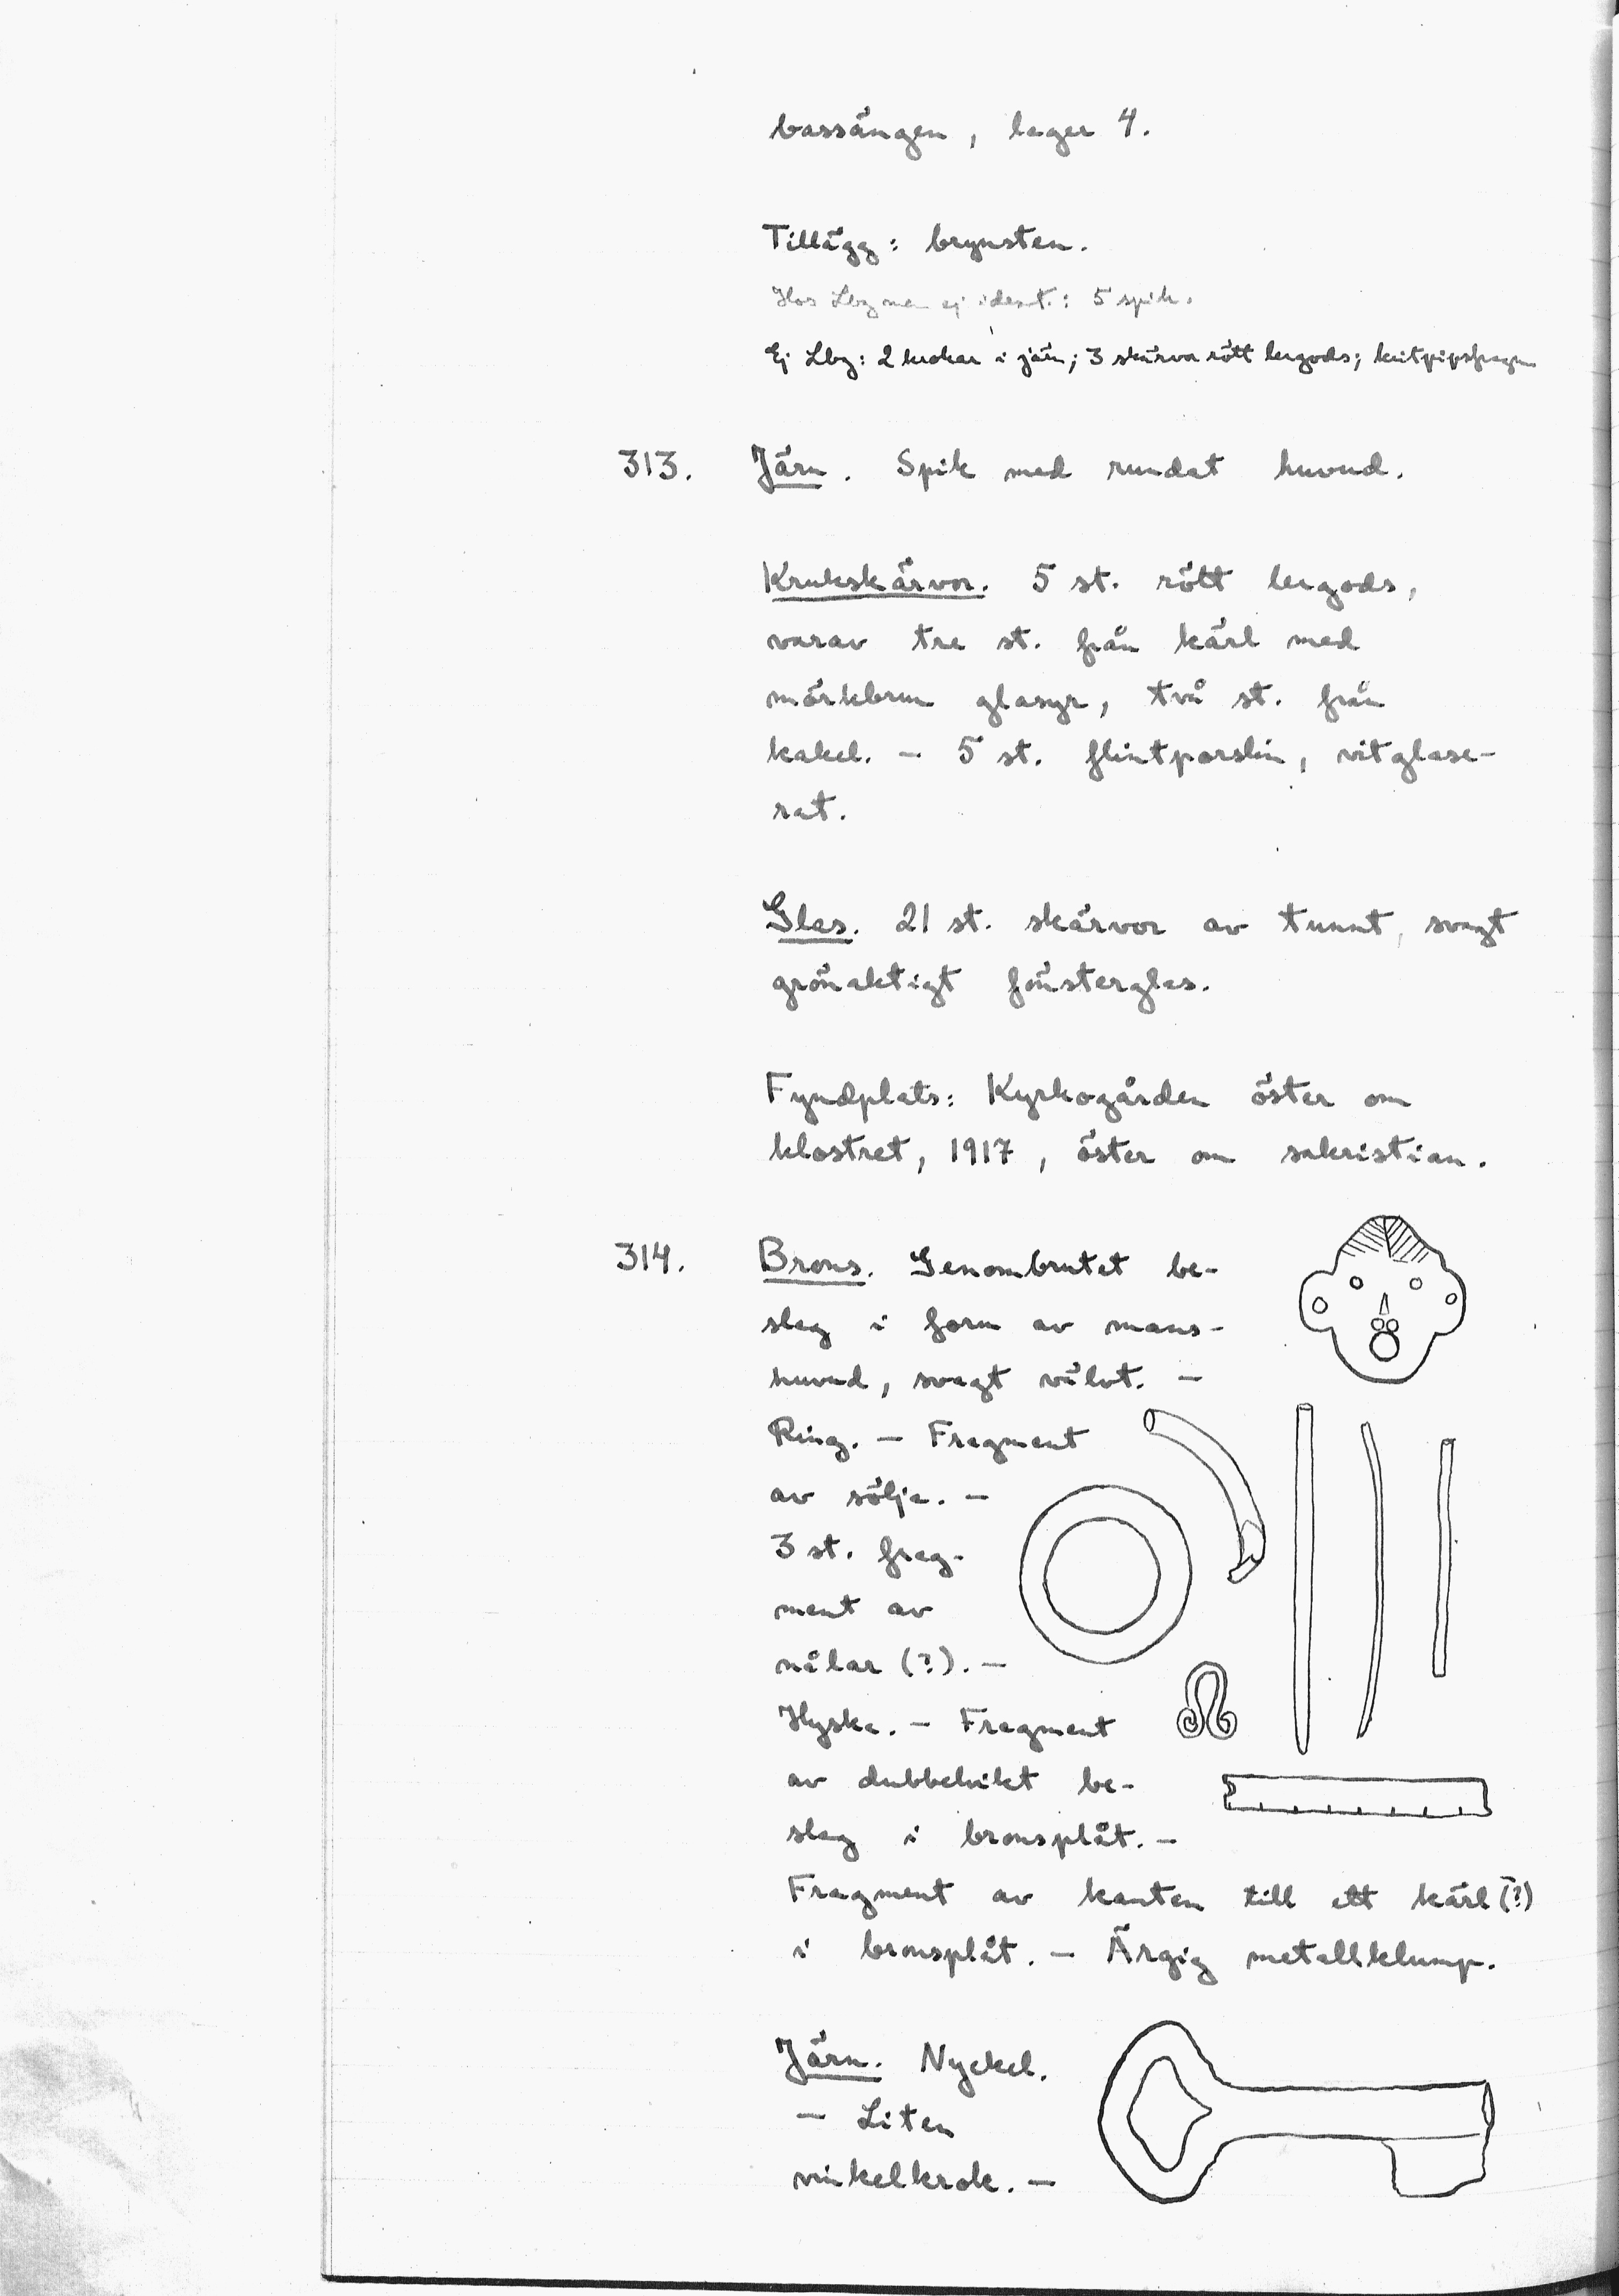 bassängen, lager 4.
Tillägg: brynsten.
Hos Lbg men ej ident.: 5 spik.
Ej Lbg: 2 krokar i järn; 3 skärvor rött lergods; kritpipsfragm
313. Järn. Spik med rundat huvud.
Krukskärvor. 5 st. rött lergods,
varav tre st. från kärl med
mörkbrun glasyr, två st. från
kakel. – 5 st. flintporslin, vitglase-
rat.
Glas. 21 st. skärvor av tunnt, svagt
grönaktigt fönsterglas.
Fyndplats: Kyrkogården öster om
klostret, 1917, öster om sakristian.
314. Brons. Genombrutet be-
slag i form av mans-
huvud, svagt välvt. –
Ring. – Fragment
av sölja. –
3 st. frag-
ment av
nålar (?). –
Hyska. – Fragment
av dubbelvikt be-
slag i bronsplåt. –
Fragment av kanten till ett kärl (?)
i bronsplåt. – Ärgig metallklump.
Järn. Nyckel.
– Liten
vinkelkrok. –